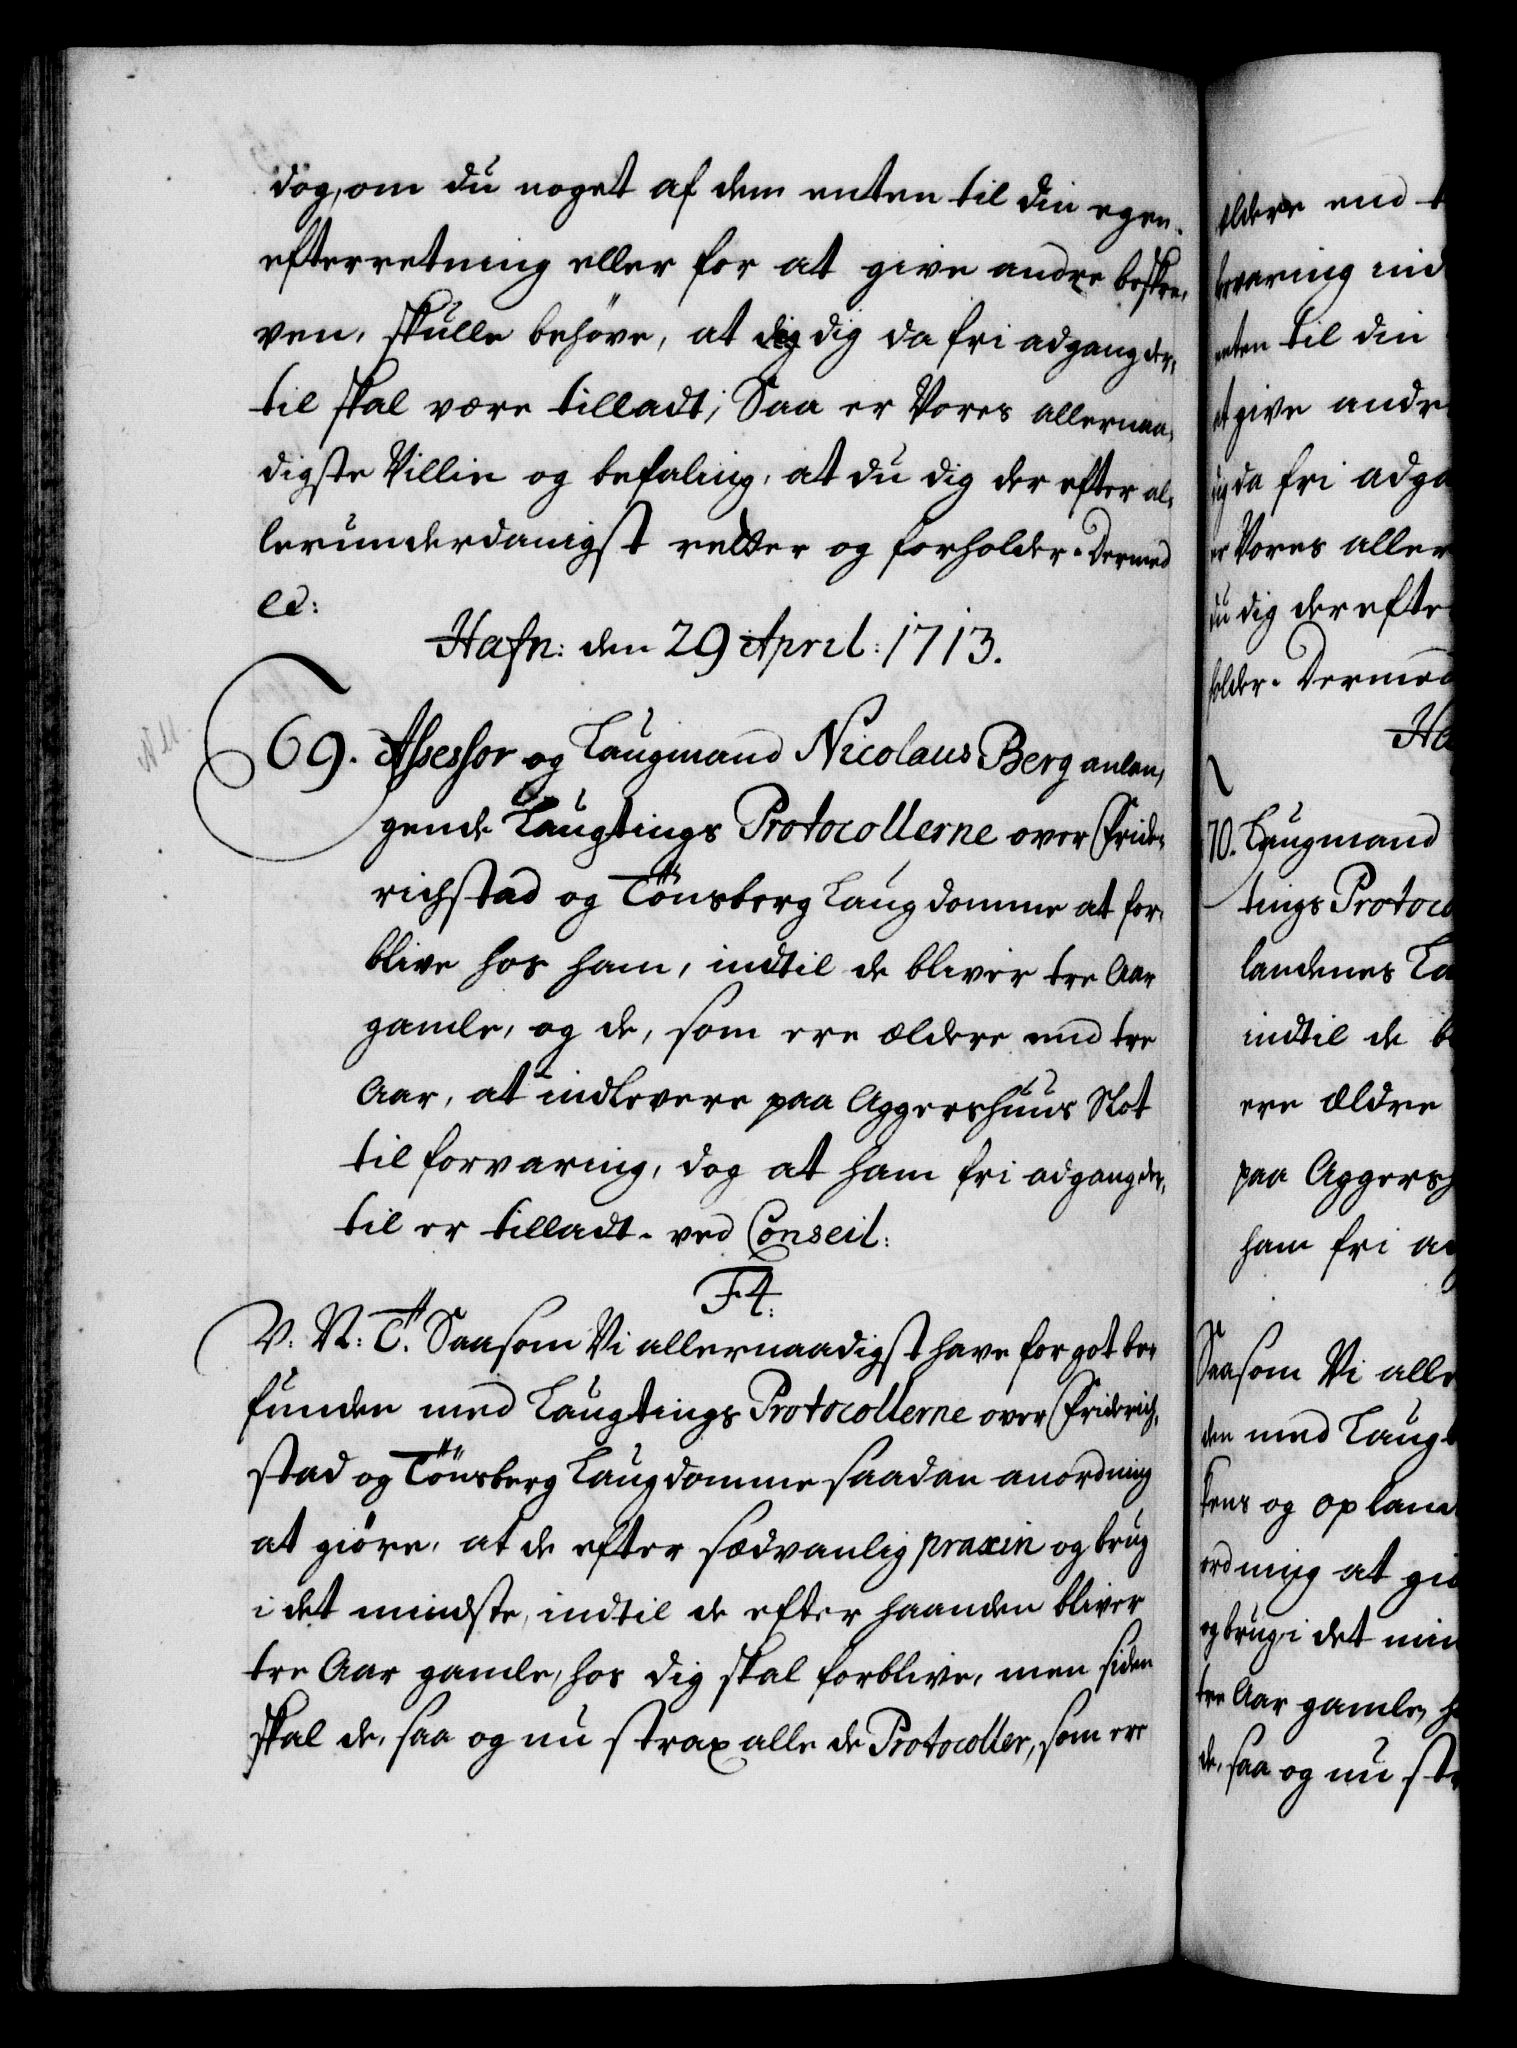 dog, om du noget af dem enten til din egen
efterretning eller for at give andre beskre,
ven, skulle behöve, at dig dig da fri adgang der,
til skal være tilladt; Saa er Vores allernaa,
digste Villie og befaling, at du dig der efter al,
lerunderdanigst retter og forholder. Dermed
ec:
Hafn: den 29 April: 1713.
69. Assessor og Laugmand Nicolaus Berg anlan,
gende Laugtings Protocollerne over Fride,
richstad og Tönsberg Laugdomme at for,
blive hos ham, indtil de bliver tre Aar
gamle, og de, som ere ældere end tre
Aar, at indlevere paa Aggershuus Slot
til forvaring, dog at ham fri adgang der,
til er tilladt. ved Conseil:
F4:
V: N: T. Saasom Vi allernaadigst have for got be,
funden med Laugtings Protocollerne over Friderich,
stad og Tönsberg Laugdomme saadan anordning
at giöre, at de efter sædvanlig praxin og brug
i det mindste, indtil de efter haanden bliver
tre Aar gamle, hos dig skal forblive, men siden
skal de, saa og nu strax alle de Protocoller, som ere
ældere end t
bevaring ind
enten til din
at give andr
dig da fri adga
er Vores aller
du dig der efte
holder. Dermed
Ha
70. Laugmand
tings Protoco
landenes La
indtil de b
ere ældre
paa Aggersh
ham fri ad
Saasom Vi alle
den med Laugt
kens og opland
ordning at giö
og brug i det min
tre Aar gamle, h
de, saa og nu str